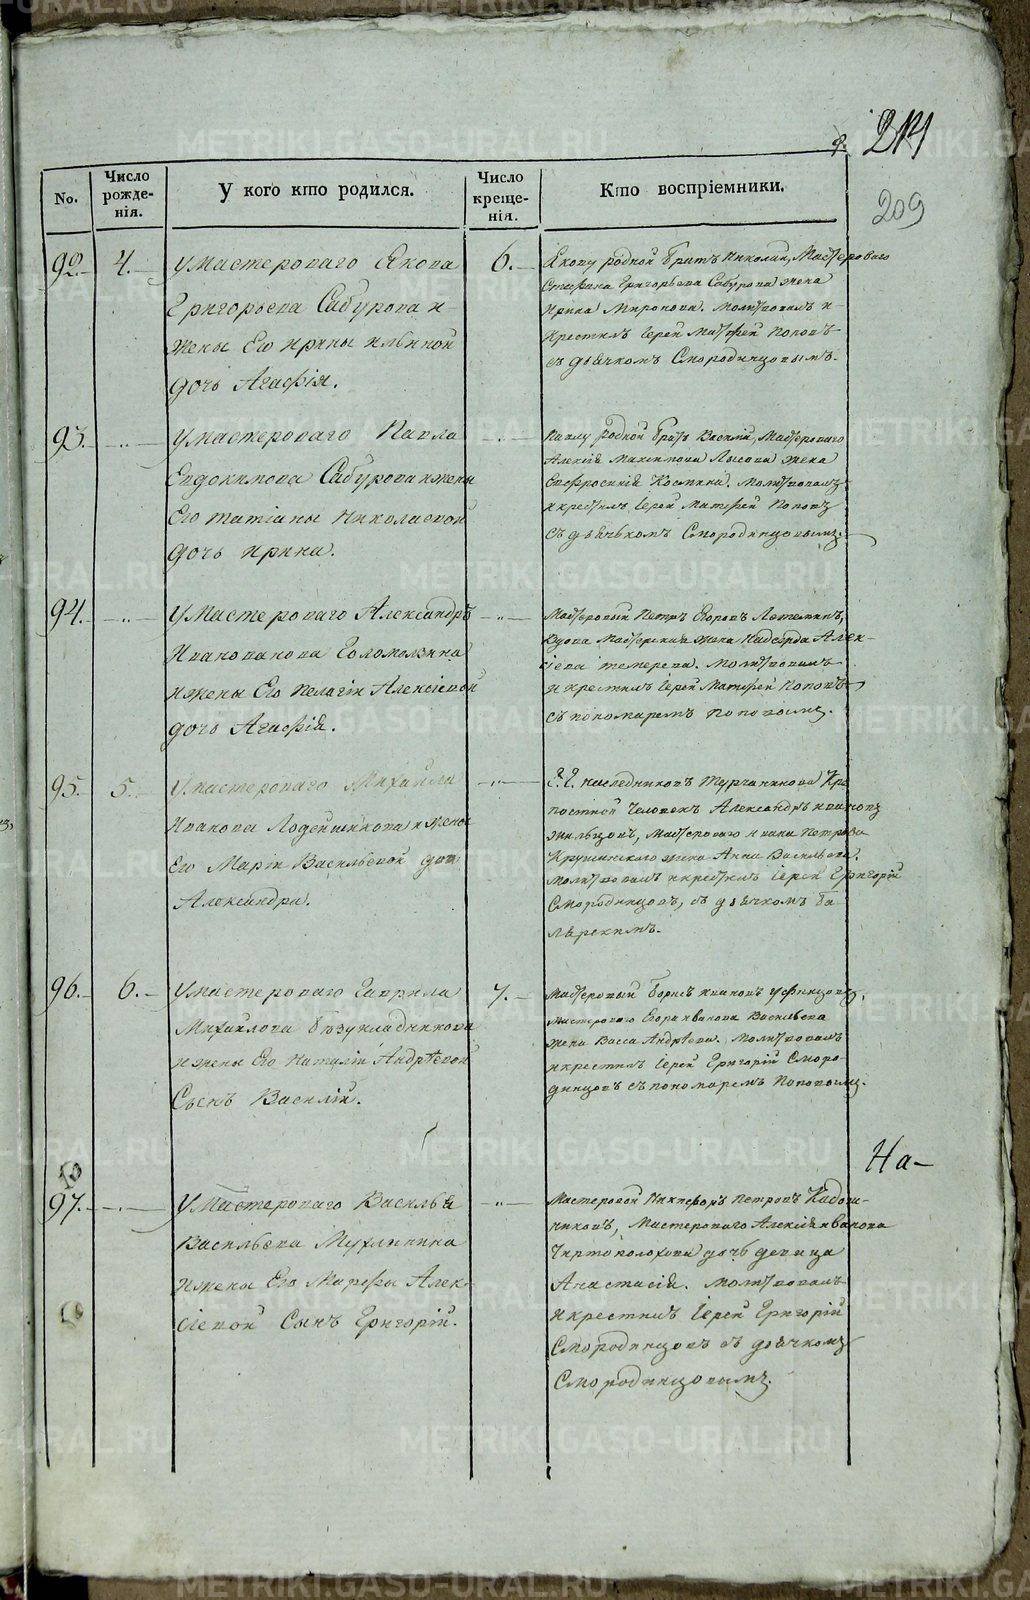 214
209
No.
Число рожденія.
У кого кто родился.
Число крещенія.
Кто воспріемники.
92. 4.
У мастероваго Якова
Григорьева Сабурова и
жены Его Ирины Ильиной
дочь Агафія.
6.
Якову родной братъ Николай, Мастероваго
Стефана Григорьева Сабурова жена
Ирина Миронова. Молитвовалъ и
крестилъ Іерей Матфей Поповъ
съ дьячкомъ Смородинцовымъ.
93.
У мастероваго Павла
Евдокимова Сабурова и жены
Его Татіаны Николаевой
дочь Ирина.
Павлу родной братъ Василій, Мастероваго
Алексія Максимова Лысова жена
Евфросинія Космина. Молитвовалъ
и крестилъ Іерей Матфей Поповъ
съ дьячькомъ Смородинцовымъ.
94.
У Мастероваго Александръ
Иванованова Голомолзина
и жены Его Пелагіи Алексіевой
дочь Агафія.
Мастеровый Петръ Егоровъ
Вдова Мастерская жена Надежда Алек-
сіева. Молитвовалъ
и крестилъ Іерей Матфей Поповъ
съ пономаремъ Поповымъ.
95. 5.
У мастероваго Михайла
Иванова Лодейщикова и жены
Его Маріи Васильевой дочь
Александра.
Г.Г. наследниковъ Турчанинова Кре
постной человекъ Александръ Ивановъ
Жильцовъ, Мастероваго Ивана Петрова
Крушинского жена Анна Васильева.
Молитвовалъ и крестилъ Іерей Григорій
Смородинцовъ, съ дьячкомъ
96. 6.
У мастероваго Гаврила
Михайлова Безукладникова
и жены Его Наталіи Андрѣевой
Сынъ Василій.
7.
Мастеровый Борисъ Ивановъ Уфинцовъ,
мастероваго Егора Иванова Васильева
жена Васса Андрѣева. Молитвовалъ
и крестилъ Іерей Григорій Сморо-
динцовъ съ пономаремъ Поповымъ.
97.
У Мастероваго Василья
Васильева Мухлынина
и жены Его Марфы Алек-
сіевой Сынъ Григорій.
Мастеровой Никифоръ Петровъ Кадош-
никовъ, Мастероваго Алексія Иванова
Чиртоколохова дочь девица
Анастасія. Молитвовалъ
и крестилъ Іерей Григорій
Смородинцовъ съ дьячкомъ
Смородинцовымъ.
На-
METRIKI.GASO-URAL.RU